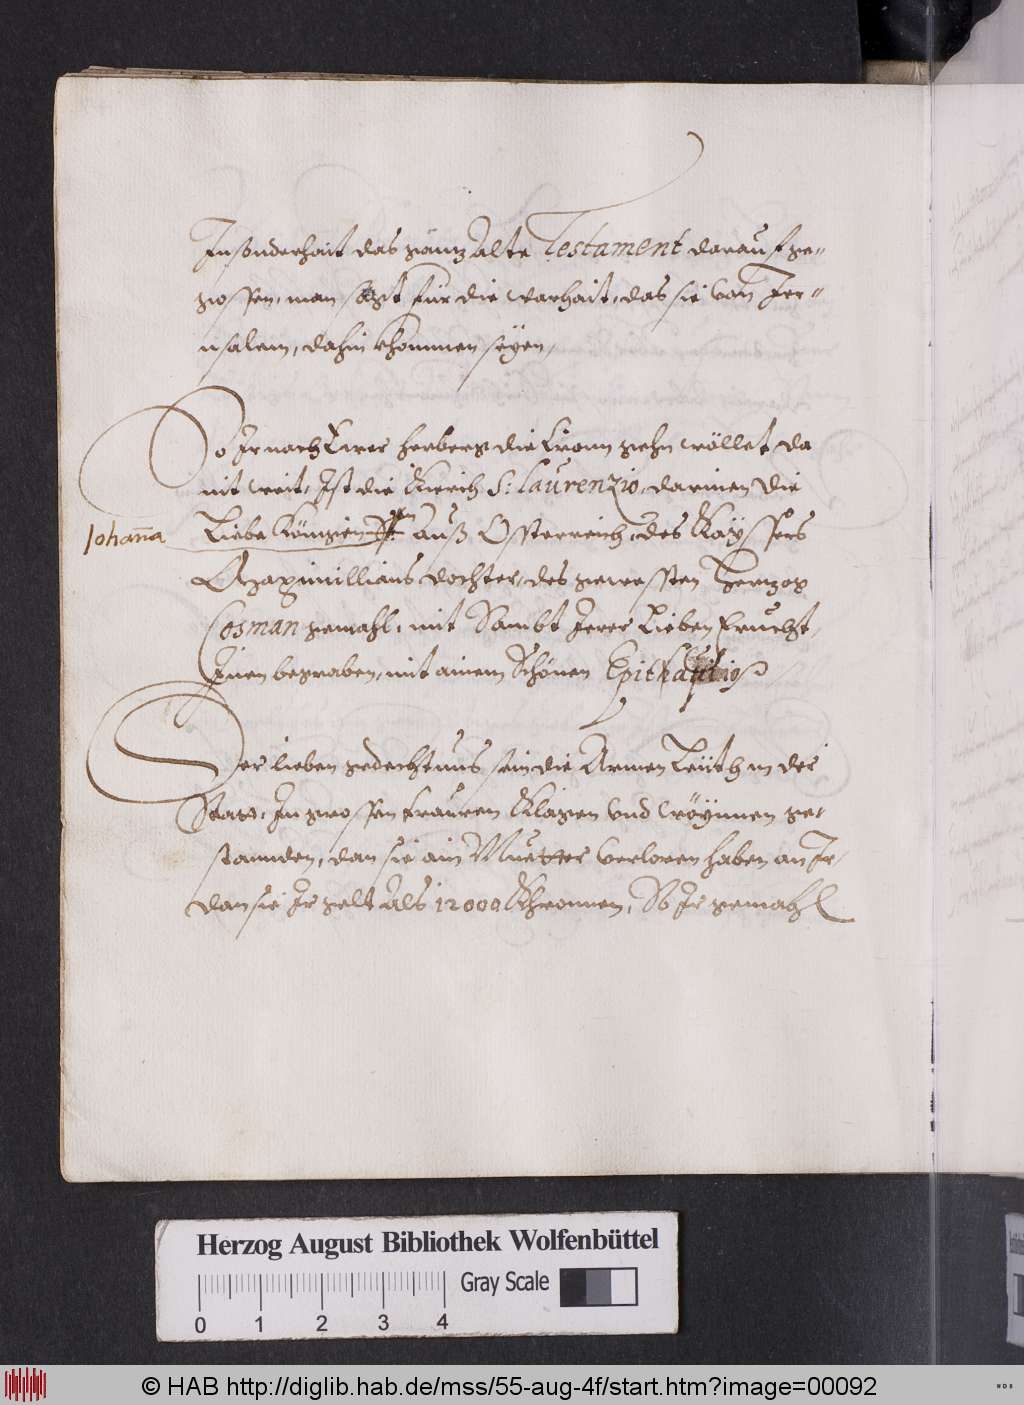 Insonderhait das gantz Alte Testament darauf ge-
gossen, man sagt für die warhait, das sie von Jer-
usalem, dahin khommen seyen,
So Ir nach Eurer herberg die Cron ziehn wöllet da
nit weit, Ist die Kierch S: Laurenzio, darinen die
Johana
Liebe Künigin auß Osterreich, des Kayssers
Maximillians dochter, des gewessten Hertzog
Cosman gemahl, mit Sambt Irer Lieben Frucht,
Inen begraben, mit ainem Schönen
Der lieben gedechtnus sein die Armen Leüth in der
Statt, In grossen trauren Klagen vnd
standen, dan sie ain Muetter verloren haben an Ir,
dan sie Ir gelt Als 12000 Khronnen, So Ir gemahl
Herzog August Bibliothek Wolfenbüttel
Gray Scale
0 1 2 3 4
© HAB http://diglib.hab.de/mss/55-aug-4f/start.htm?image=00092